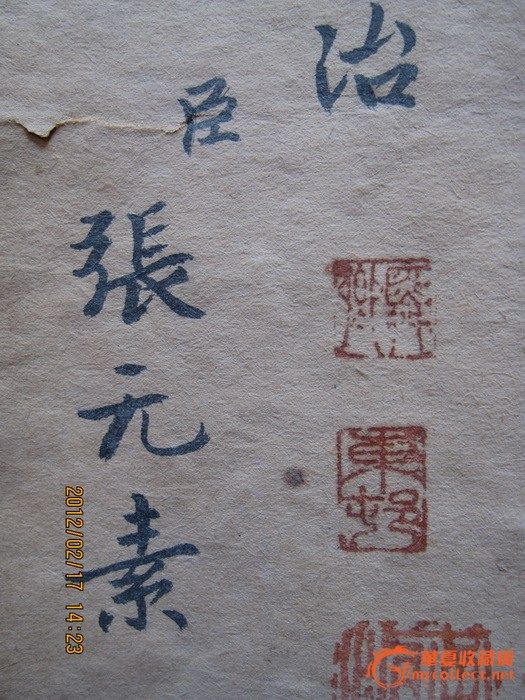 治
臣
張元素
東邨
2012/02/17 14:23
華夏收藏網
mycollect.net